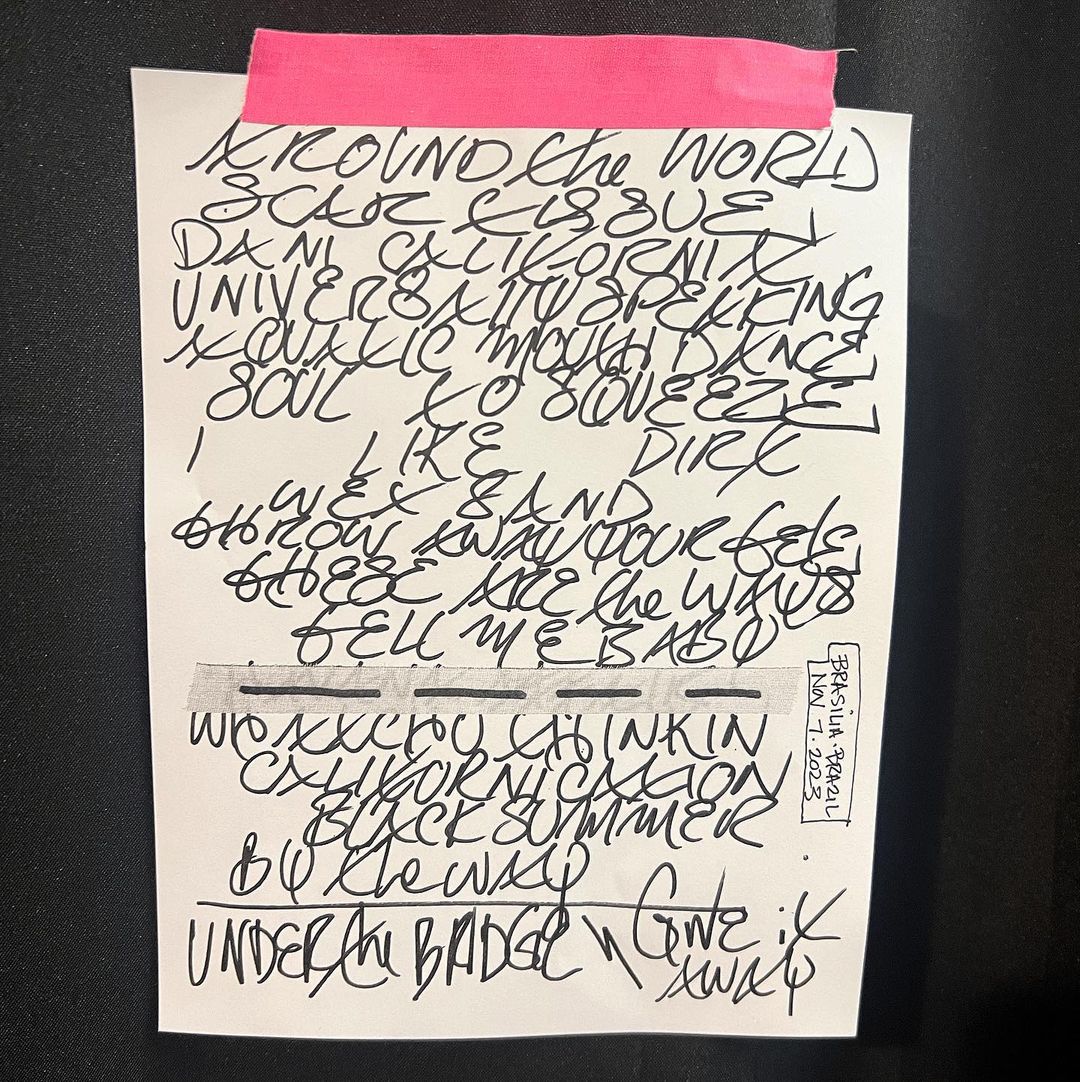 AROUND the WORLD
SCAR TISSUE
DANI CALIFORNIA
UNIVERSALLY SPEAKING
AQUATIC MOUTH DANCE
SOUL TO SQUEEZE
I LIKE DIRT
WET SAND
THROW AWAY YOUR TELE
THESE ARE the WAYS
TELL ME BABY
WHATCHU THINKIN
CALIFORNICATION
BLACK SUMMER
BY the WAY
UNDER the BRIDGE N GIVE iT
AWAY
BRASILIA. BRAZIL
NOV 7. 2023